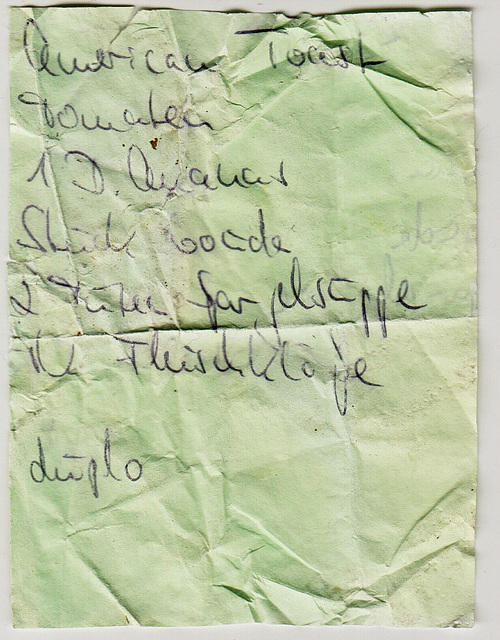 American Toast
Tomaten
1 D. Ananas
Stück Gouda
2 Tüten Spargelsuppe
Kl. Fleischklöße
duplo